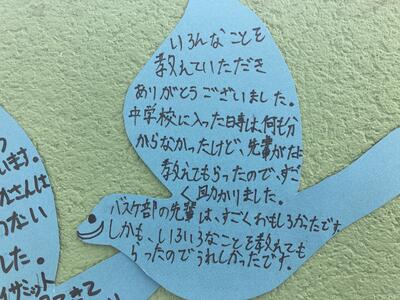 いろんなことを
教えていただき
ありがとうございました。
中学校に入った時は、何も分
からなかったけど、先輩がたに
教えてもらったので、すご
く助かりました。
バスケ部の先輩は、すごくおもしろかったです。
しかも、いろいろなことを教えても
らったのでうれしかったです。
います。
さんは
ない
した。
イサミット
きて